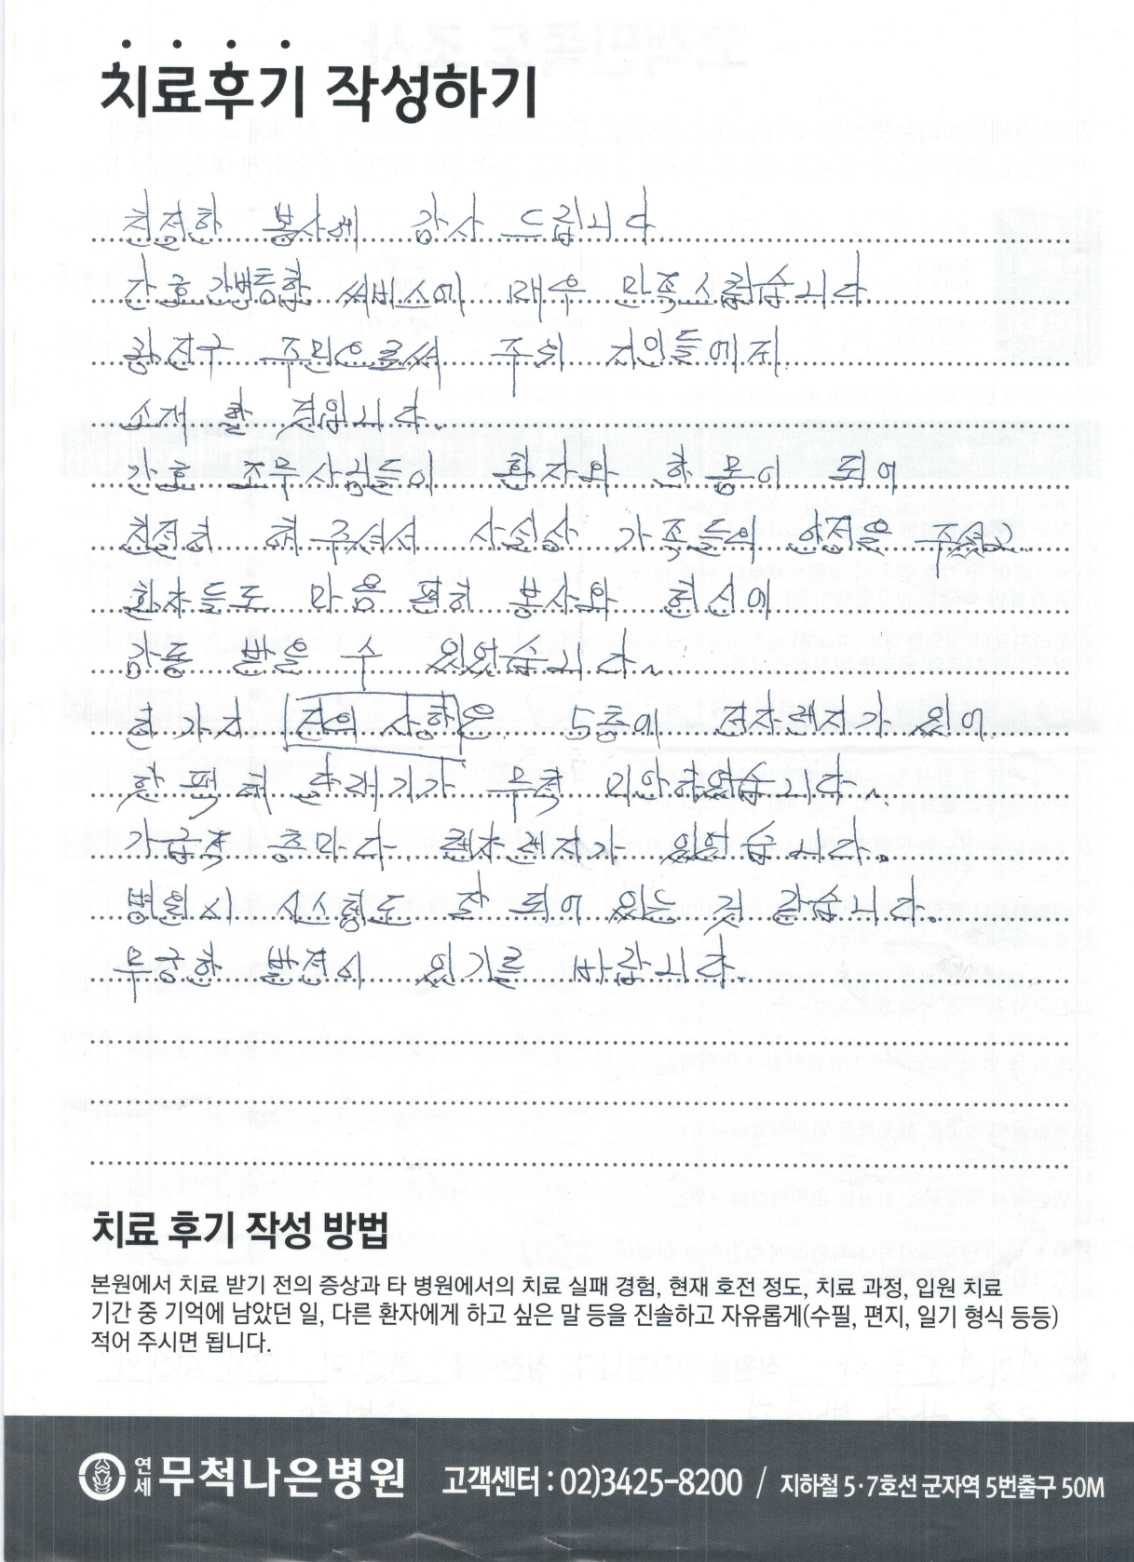 치료후기 작성하기
친절한 봉사에 감사 드립니다
간호 간병통합 써비스에 매우 만족스럽습니다
광진구 주민으로써 주위 지인들에게
소개 할 것입니다.
간호 조무사님들이 환자와 한 몸이 되어
친절히 해 주셔서 사실상 가족들의 안정을 주셨고
환자들도 마음 편히 봉사와 헌신에
감동 받을 수 있었습니다.
한 가지 건의 사항은 5층에 전자렌지가 있어
한 편히 하기가 무척 미안하였습니다.
가급적 층마다 렌지가 있었습니다.
병원 시 시스템도 잘 되어 있는 것 같습니다.
무궁한 발전이 있기를 바랍니다.
치료 후기 작성 방법
본원에서 치료 받기 전의 증상과 타 병원에서의 치료 실패 경험, 현재 호전 정도, 치료 과정, 입원 치료
기간 중 기억에 남았던 일, 다른 환자에게 하고 싶은 말 등을 진솔하고 자유롭게(수필, 편지, 일기 형식 등등)
적어 주시면 됩니다.
연세 무척나은병원 고객센터 : 02)3425-8200 / 지하철 5·7호선 군자역 5번출구 50M